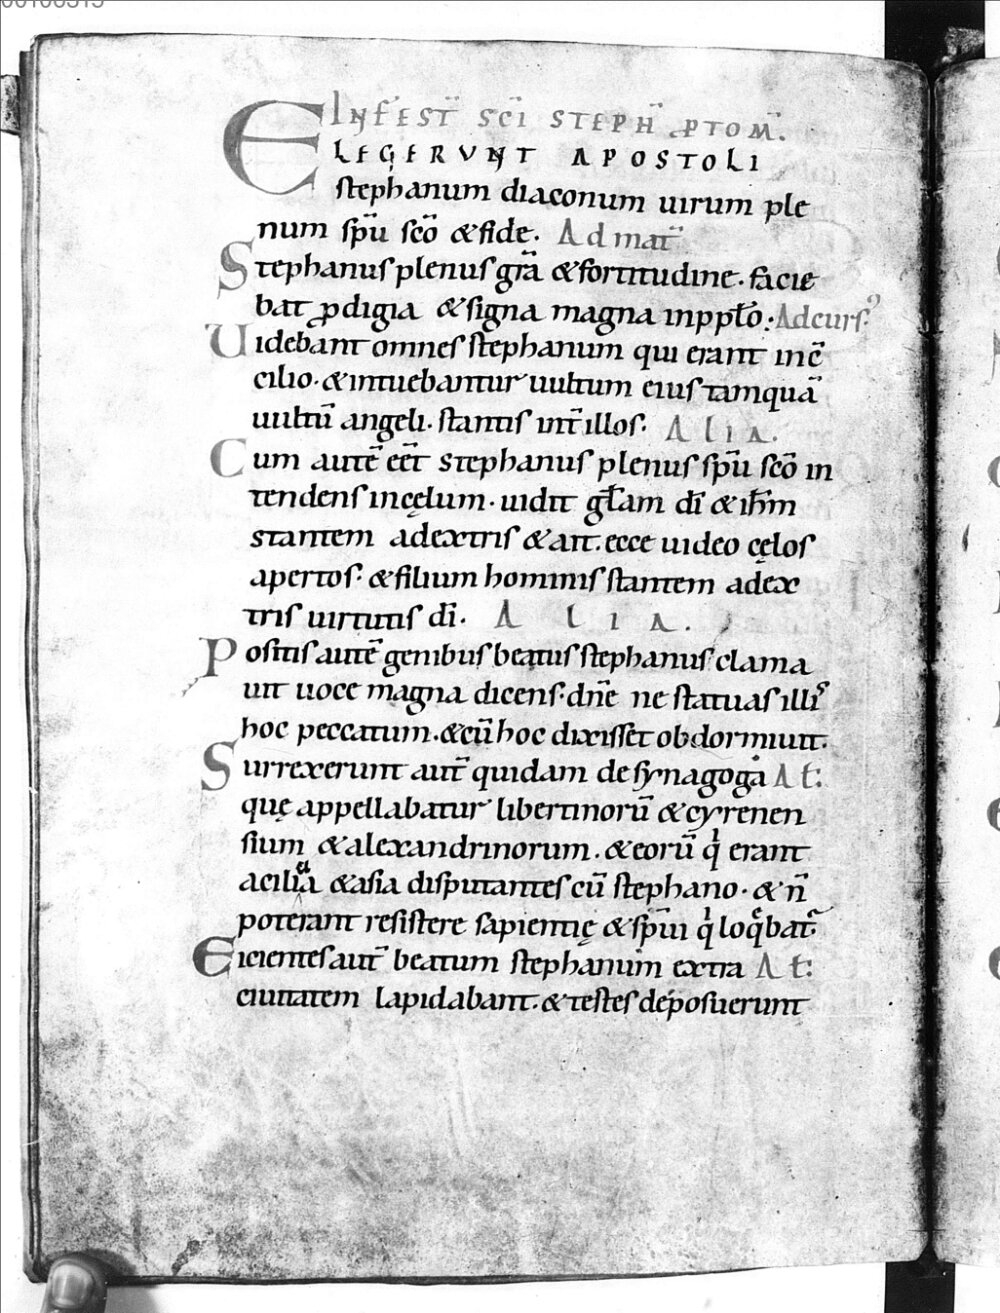 IN FEST̄ SC̄I STEPH̄ P̱TOM̄.
ELEGERVNT APOSTOLI
stephanum diaconum uirum ple
num sp̄u sc̄o &fide. Ad mat̄
Stephanus plenus gr̄a &fortitudine. facie
bat ꝓdigia &signa magna inpplo: Adcurs
Uidebant omnes stephanum qui erant inc̄
cilio. &intuebantur uultum eius tamquā
uultū angeli. stantis int̄ illos. Alia.
Cum autē eēt stephanus plenus sp̄u sc̄o in
tendens incęlum. uidit gl̄am dī &ih̄m
stantem adextris &ait. ecce uideo cęlos
apertos. &filium hominis stantem adex
tris uirtutis dī. Alia.
Positis autē genibus beatus stephanus clama
uit uoce magna dicens. dn̄e ne statuas illis
hoc peccatum. &cū hoc dixisset obdormiuit.
Surrexerunt aut̄ quidam de synagoga At:
quę appellabatur libertinorū &cyrenen
sium &alexandrinorum. &eorū qi erant
acilicia &asia disputantes cū stephano. &n̄
poterant resistere sapientię &sp̄ui qi loq̄bat̄.
Eicientes aut̄ beatum stephanum extra At:
ciuitatem lapidabant. &testes deposuerunt